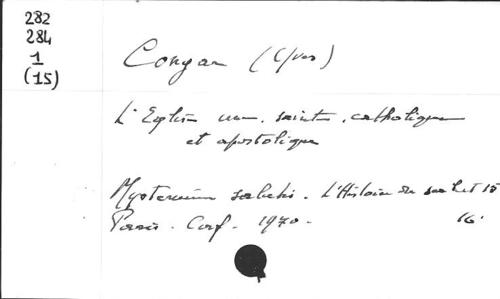 282
284
1
(15)
Congar (Yves)
L'Eglise une, sainte, catholique
et apostolique
Mysterium salutis. L'Histoire du salut 15
Paris. Cerf. 1970. 16